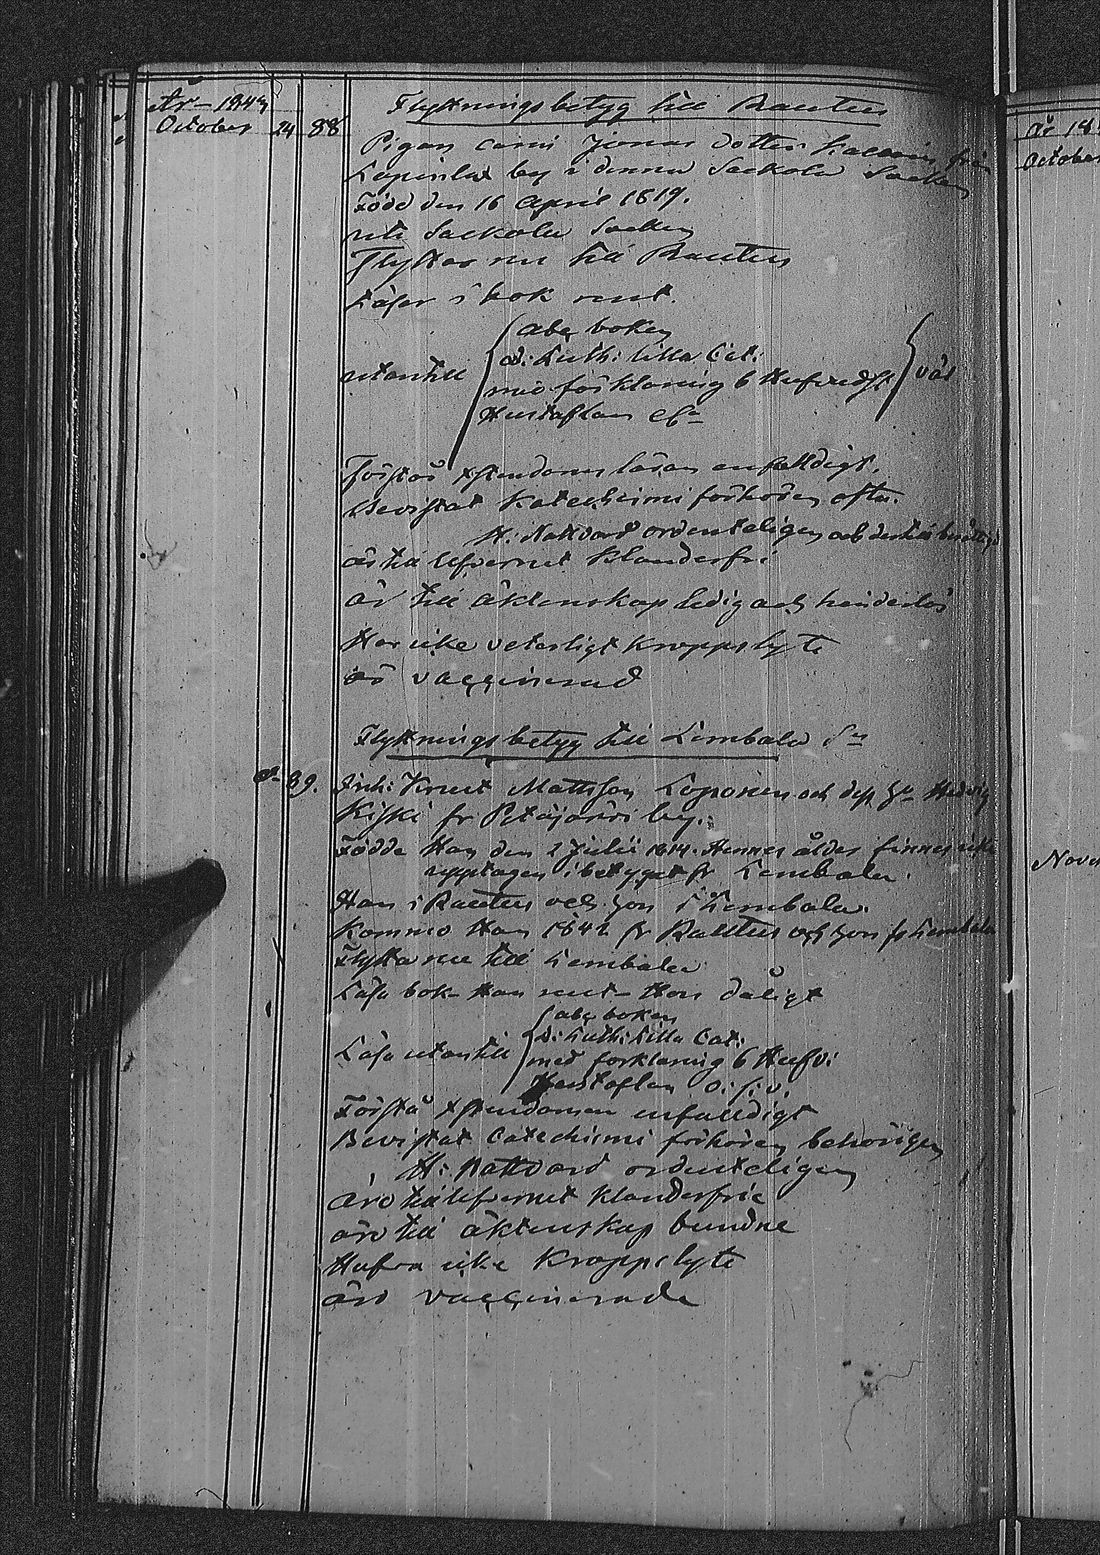 År 1843
October 24 88
Flyttningsbetyg till Rautus
Pigan Jonas dotter från
Lapinlax by i denna Sackola Socken
Född den 16 April 1819.
uti Sackola Socken
Flyttar nu till Rautus
Läser i bok rent.
abc boken
D: Luth: Lilla Cat:
utantill med förklaring 6 Hufvudst väl
Hustaflan
Förstår Xstendoms läran enfalldigt.
Bevistat Katechismi förhören ofta.
H: Nattvard ordenteligen och dertill
är till lefvernet klanderfri
är till äktenskap ledig och hinderlös
Har icke veterligt Kroppslyte
är vaccinerad
Flyttningsbetyg till Lembala Sn
89. Mattsson Loponen och dess Hu Hedvig
Kiski fr Petäjärvi by.
Födde Han den 2 Julii 1814. Hennes ålder finnes icke
upptagen i betyget fr Lembala.
Han i Rautus och hon i Lembala.
Kommo Han 1842 fr Rautus och hon fr Lembala
Flytta nu till Lembala
Läsa bok Han rent Hon dåligt
abc boken
D: Luth: Lilla Cat:
Läsa utantill med förklaring 6 Hufv:
Hustaflan o. s. v.
Förstå Xstendomen enfalldigt
Bevistat Catechismi förhören behörigen
H: Nattvard ordenteligen
äro till lefvernet klanderfrie
äro till äktenskap bundne
Hafva icke Kroppslyte
äro vaccinerade
År 18
October
Nove